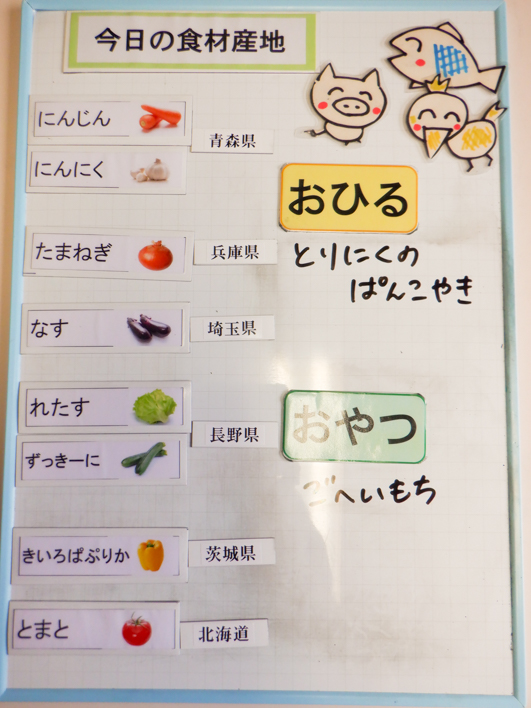 今日の食材産地
にんじん
青森県
にんにく
たまねぎ
兵庫県
なす
埼玉県
れたす
長野県
ずっきーに
きいろぱぷりか
茨城県
とまと
北海道
おひる
とりにくの
ぱんこやき
おやつ
ごへいもち